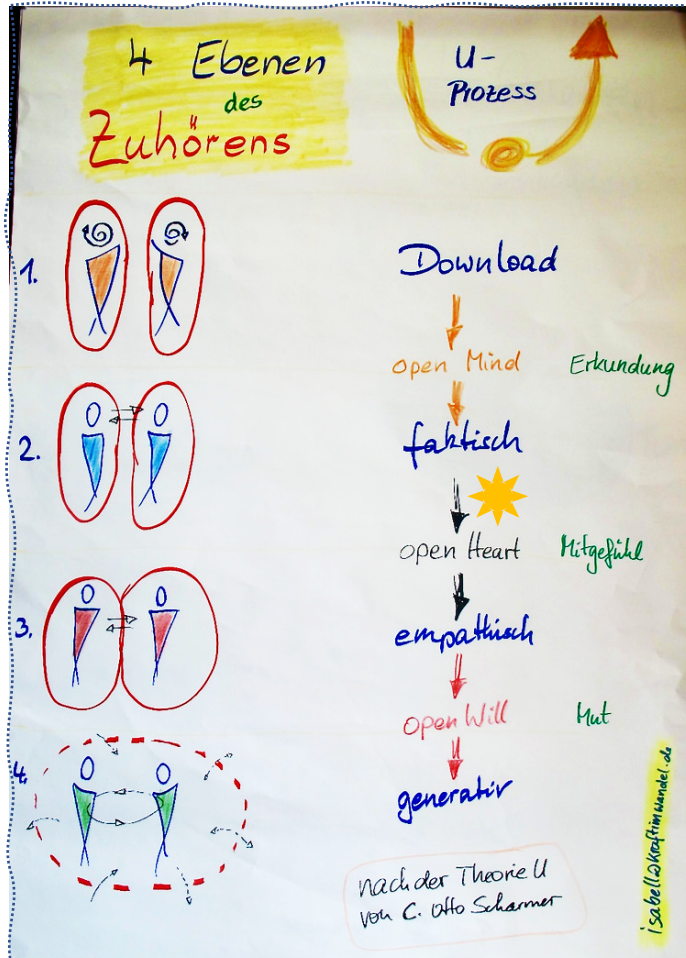 4 Ebenen
des
Zuhörens
U-
Prozess
1.
Download
open Mind Erkundung
2.
faktisch
open Heart Mitgefühl
3.
empathisch
open Will Mut
4.
generativ
nach der Theorie U
von C. Otto Scharmer
isabell@kraftimwandel.de